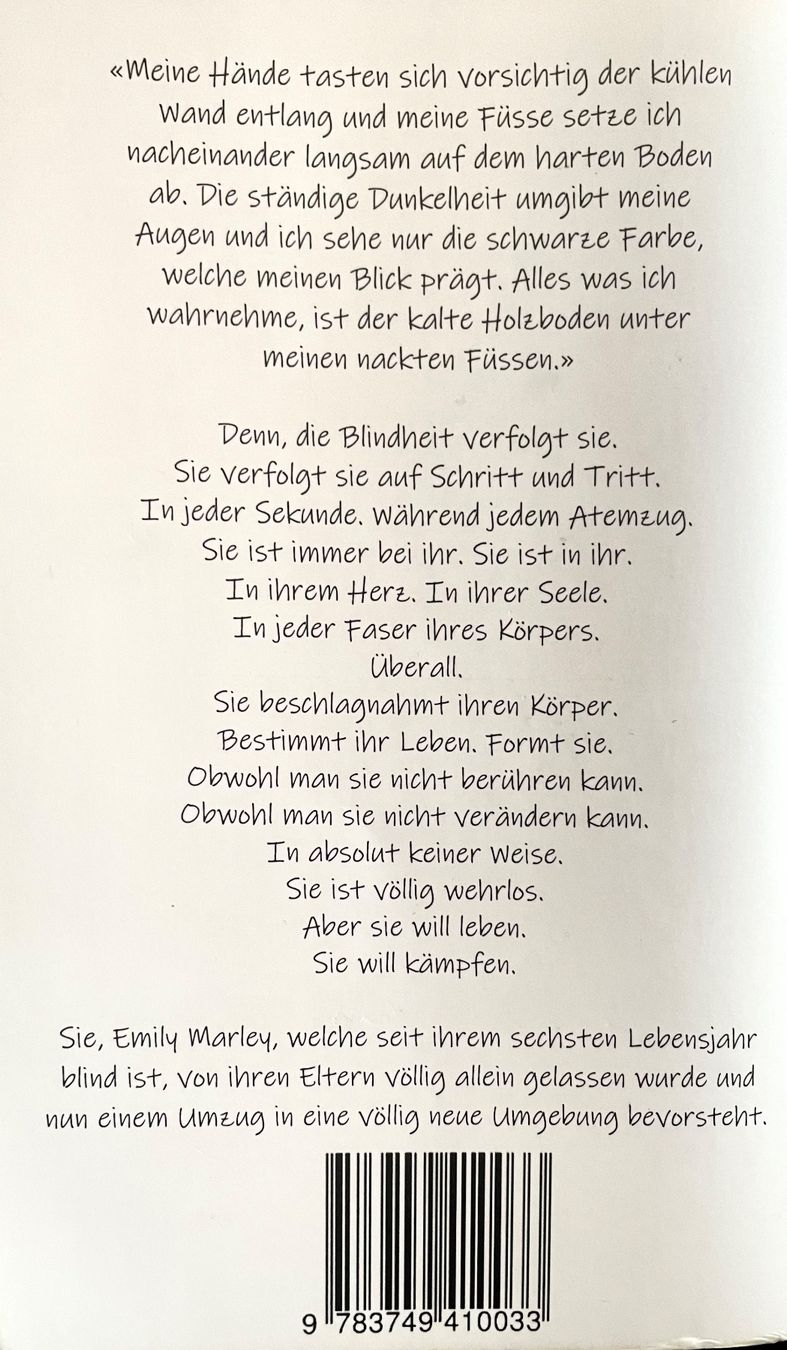 «Meine Hände tasten sich vorsichtig der kühlen
Wand entlang und meine Füsse setze ich
nacheinander langsam auf dem harten Boden
ab. Die ständige Dunkelheit umgibt meine
Augen und ich sehe nur die schwarze Farbe,
welche meinen Blick prägt. Alles was ich
wahrnehme, ist der kalte Holzboden unter
meinen nackten Füssen.»
Denn, die Blindheit verfolgt sie.
Sie verfolgt sie auf Schritt und Tritt.
In jeder Sekunde. Während jedem Atemzug.
Sie ist immer bei ihr. Sie ist in ihr.
In ihrem Herz. In ihrer Seele.
In jeder Faser ihres Körpers.
Überall.
Sie beschlagnahmt ihren Körper.
Bestimmt ihr Leben. Formt sie.
Obwohl man sie nicht berühren kann.
Obwohl man sie nicht verändern kann.
In absolut keiner Weise.
Sie ist völlig wehrlos.
Aber sie will leben.
Sie will kämpfen.
Sie, Emily Marley, welche seit ihrem sechsten Lebensjahr
blind ist, von ihren Eltern völlig allein gelassen wurde und
nun einem Umzug in eine völlig neue Umgebung bevorsteht.
9 783749 410033